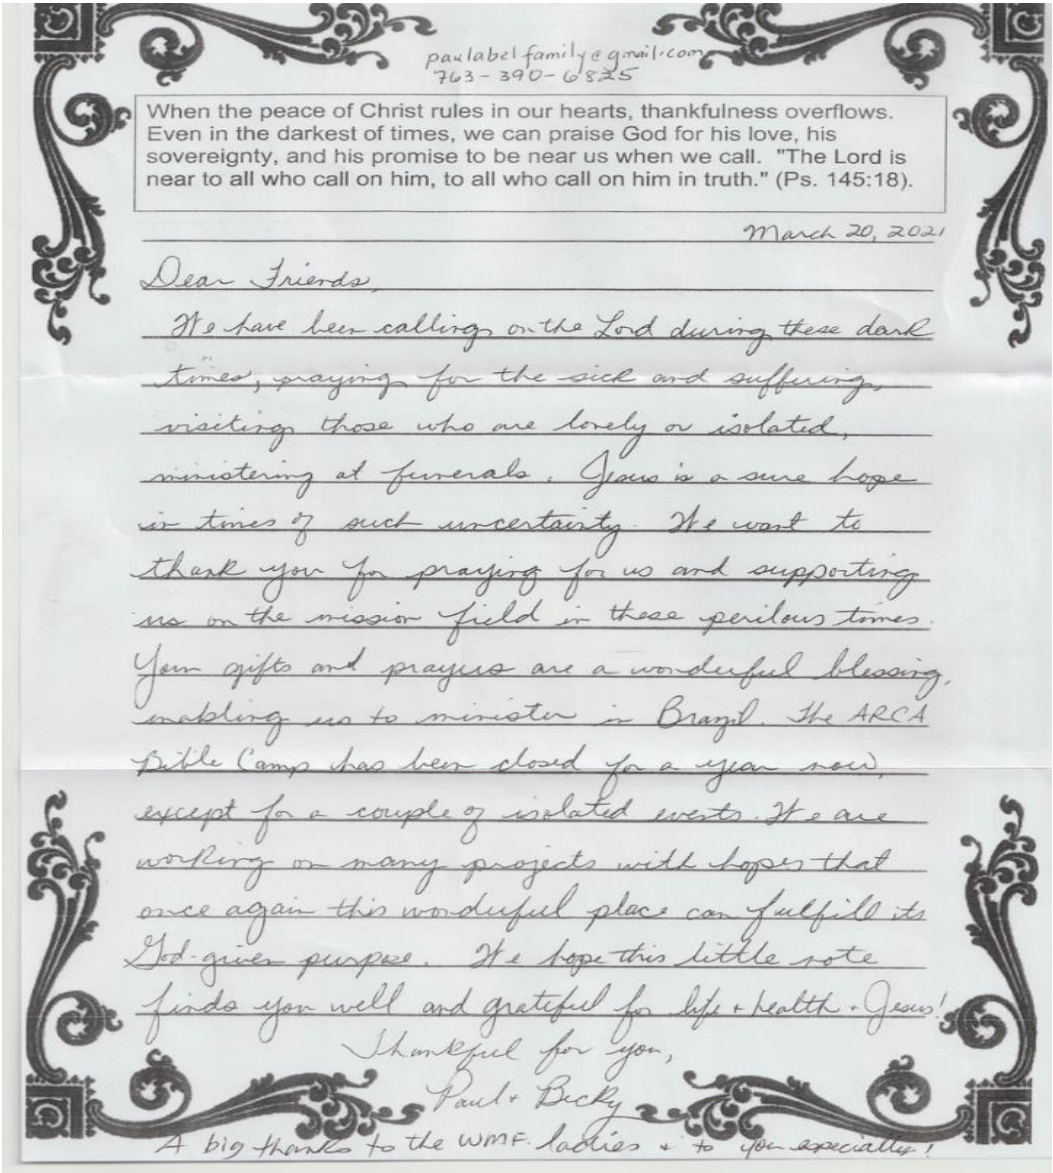 paulabelfamily@gmail.com
763-390-6825
When the peace of Christ rules in our hearts, thankfulness overflows.
Even in the darkest of times, we can praise God for his love, his
sovereignty, and his promise to be near us when we call. "The Lord is
near to all who call on him, to all who call on him in truth." (Ps. 145:18).
March 20, 2021
Dear Friends,
We have been calling on the Lord during these dark
times, praying for the sick and suffering,
visiting those who are lonely or isolated,
ministering at funerals. Jesus is a sure hope
in times of such uncertainty. We want to
thank you for praying for us and supporting
us on the mission field in these perilous times.
Your gifts and prayers are a wonderful blessing,
enabling us to minister in Brazil. The ARCA
Bible Camp has been closed for a year now,
except for a couple of isolated events. We are
working on many projects with hopes that
once again this wonderful place can fulfill its
God-given purpose. We hope this little note
finds you well and grateful for life + health + Jesus!
Thankful for you,
Paul + Becky
A big thanks to the WMF ladies + to you especially!